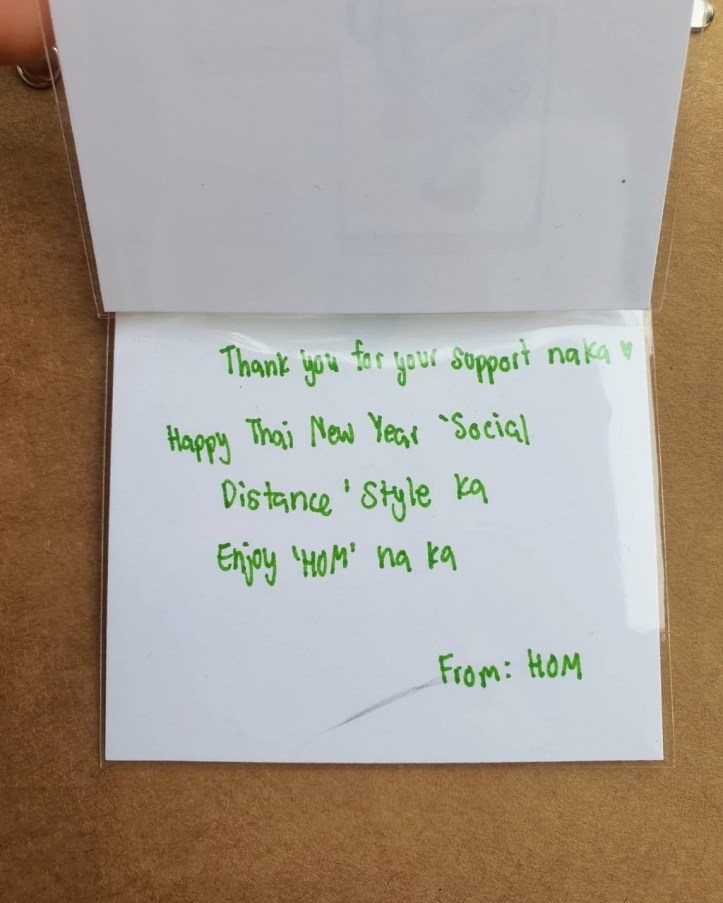 Thank you for your support naka ♥
Happy Thai New Year 'Social
Distance' Style ka
Enjoy 'HOM' na ka
From: HOM